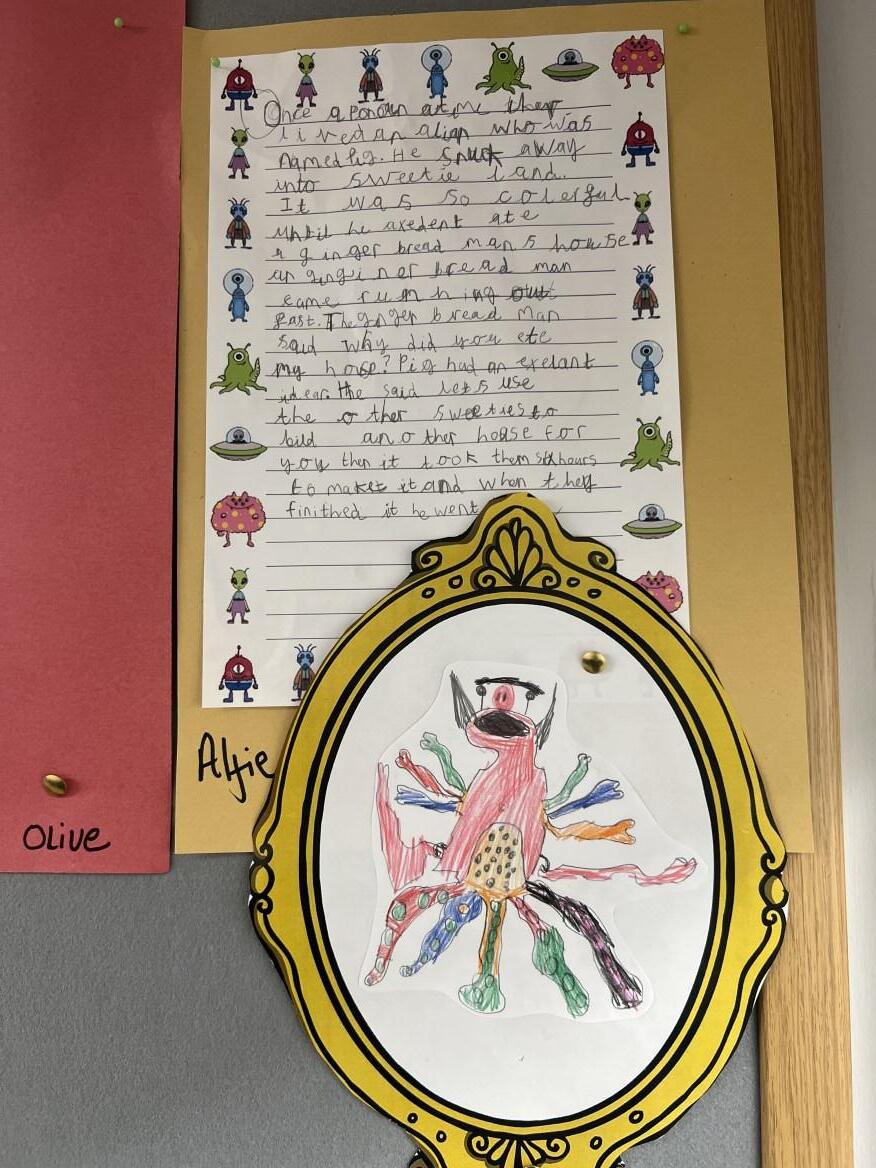 Once aponon atme ther
lived an alian who was
named Pig. He snuk away
into sweetie land.
It was so colerful
until he axedent ate
a ginger bread mans house
an gingi ner bread man
came rumhing out
past. The ginger bread man
said why did you ete
my house? Pig had an exelant
idear. He said lets use
the other sweeties to
bild another house for
you then it took them six hours
to make it and when they
finithed it he went
Alfie
Olive